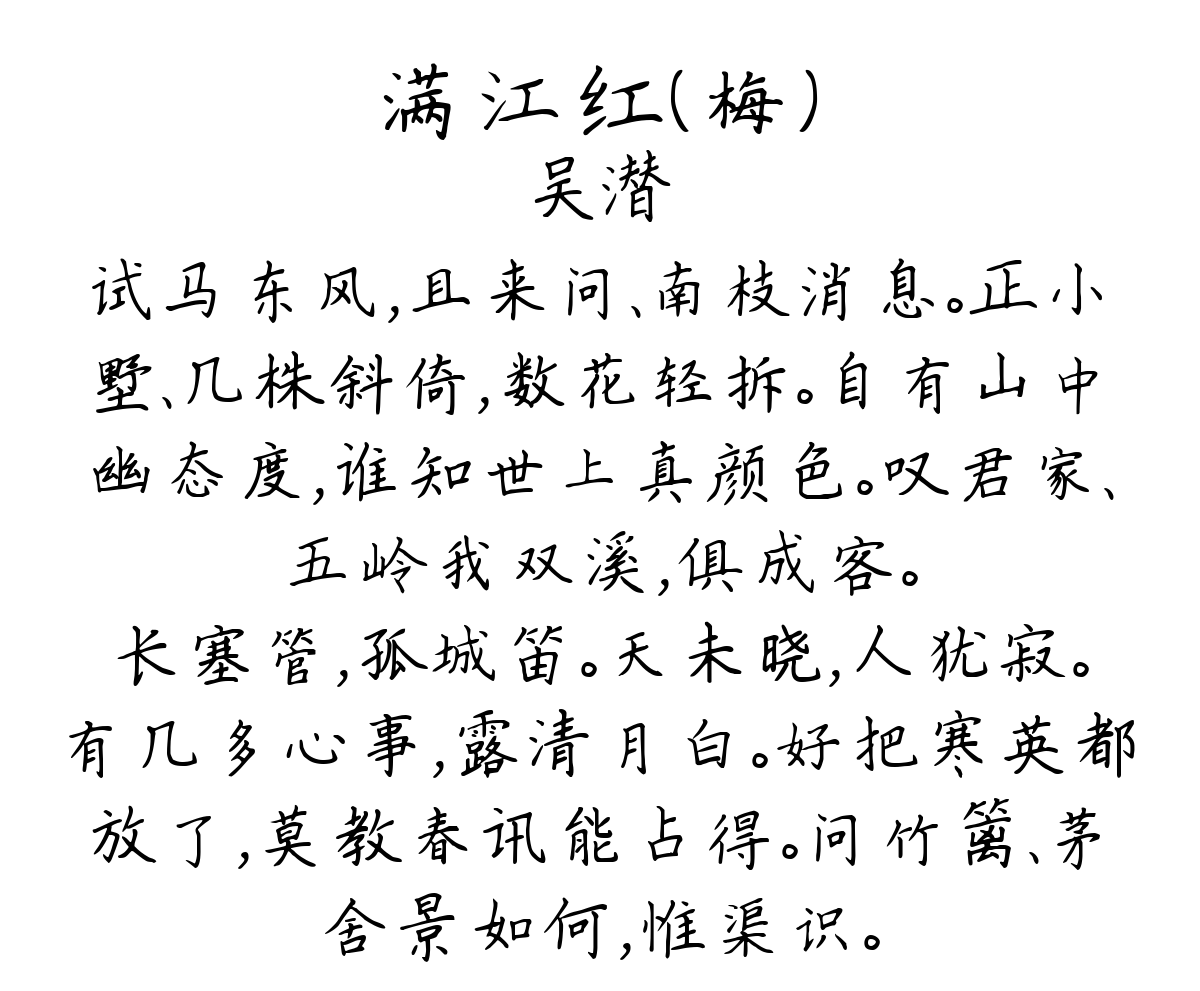 满江红(梅)
吴潜
试马东风,且来问、南枝消息。正小
墅、几株斜倚,数花轻拆。自有山中
幽态度,谁知世上真颜色。叹君家、
五岭我双溪,俱成客。
长塞管,孤城笛。天未晓,人犹寂。
有几多心事,露清月白。好把寒英都
放了,莫教春讯能占得。问竹篱、茅
舍景如何,惟渠识。